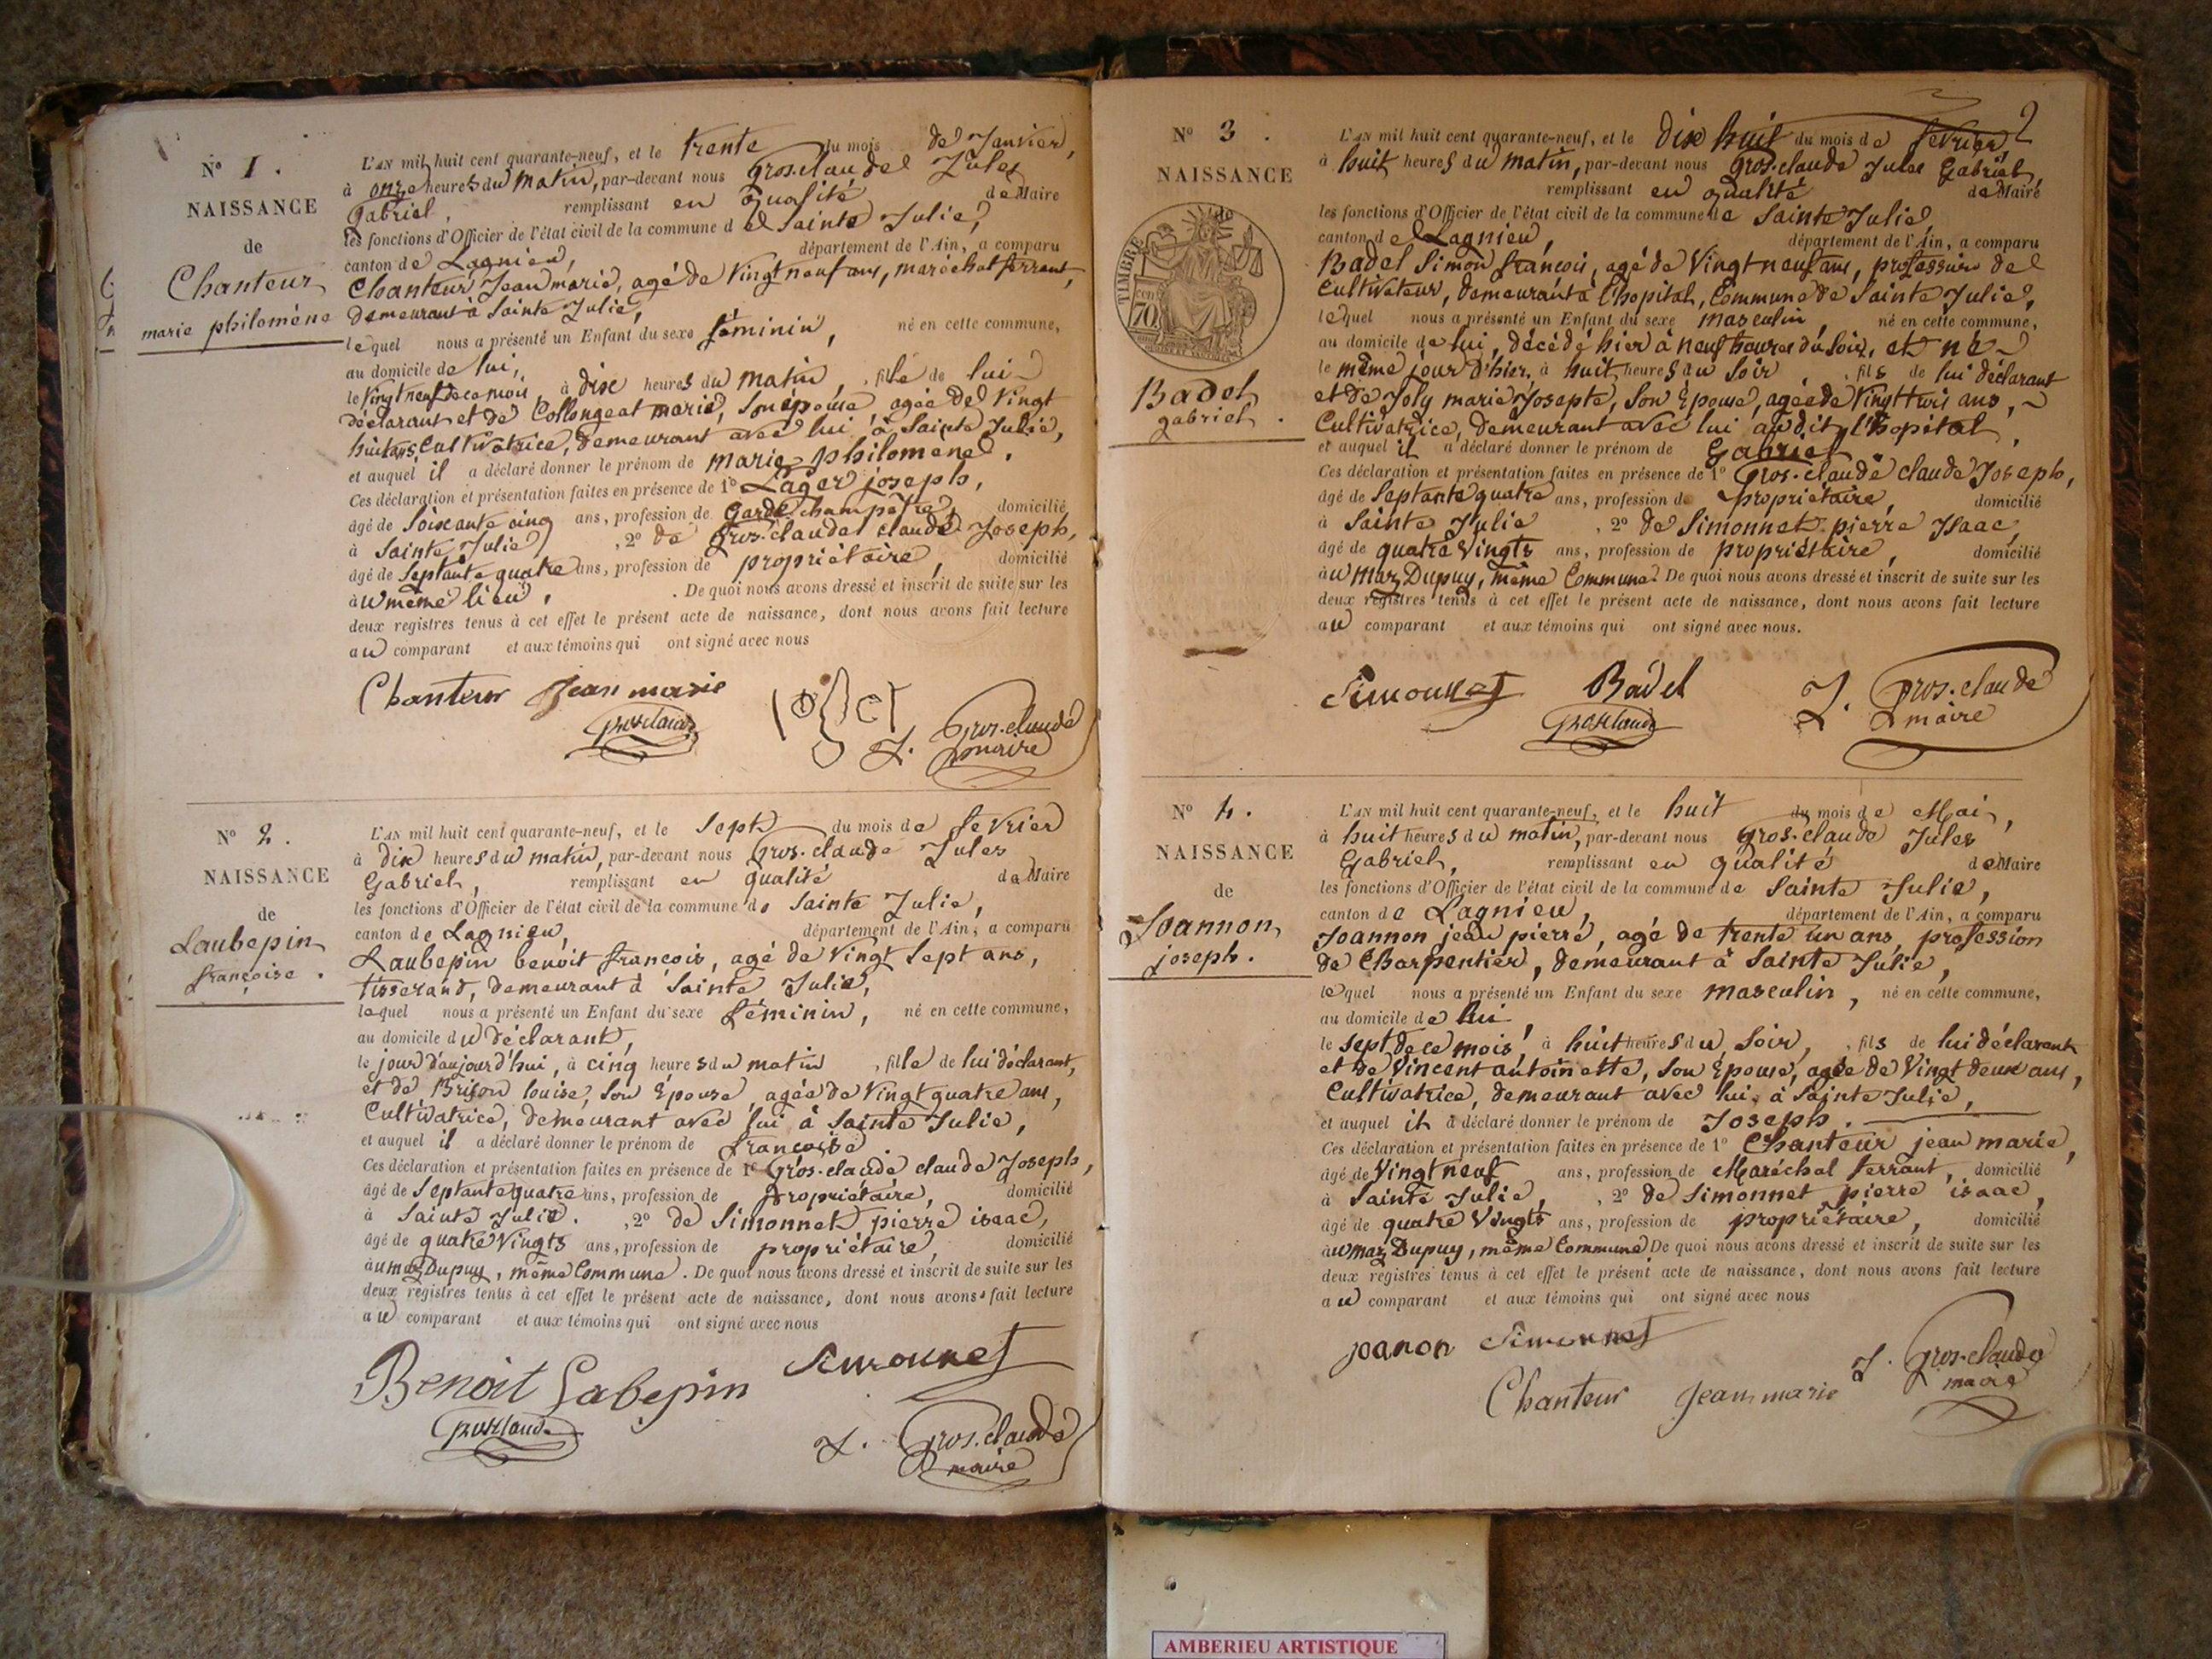 No 1.
NAISSANCE
de
Chanteur
marie philomène
L'AN mil huit cent quarante-neuf, et le trente du mois de Janvier,
à onze heures du matin, par-devant nous Gros-claude Jules
Gabriel, remplissant en qualité de Maire
les fonctions d'Officier de l'état civil de la commune de Sainte Julie,
canton de Lagnieu, département de l'Ain, a comparu
Chanteur Jean marie, agé de Vingt neuf ans, maréchal ferrant,
demeurant à Sainte Julie,
lequel nous a présenté un Enfant du sexe féminin, né en cette commune,
au domicile de lui,
le Vingt neuf de ce mois, à dix heures du matin, fille de lui
déclarant et de Collongeat marie, Son épouse agée de Vingt
huit ans, Cultivatrice, demeurant avec lui à Sainte Julie,
et auquel il a déclaré donner le prénom de marie philomène.
Ces déclaration et présentation faites en présence de 1o Lager joseph,
âgé de Soixante cinq ans, profession de Garde champêtre, domicilié
à Sainte Julie, 2o de Gros-claude claude Joseph,
âgé de Septante quatre ans, profession de propriétaire, domicilié
au même lieu. De quoi nous avons dressé et inscrit de suite sur les
deux registres tenus à cet effet le présent acte de naissance, dont nous avons fait lecture
au comparant et aux témoins qui ont signé avec nous
Chanteur Jean marie
Grosclaude
J. Gros-claude
maire
No 2.
NAISSANCE
de
Laubepin
françoise.
L'AN mil huit cent quarante-neuf, et le Sept du mois de fevrier
à dix heures du matin, par-devant nous Gros-claude Jules
Gabriel, remplissant en qualité de Maire
les fonctions d'Officier de l'état civil de la commune de Sainte Julie,
canton de Lagnieu, département de l'Ain, a comparu
Laubepin benoit françois, agé de Vingt Sept ans,
tisserand, demeurant à Sainte Julie,
lequel nous a présenté un Enfant du sexe féminin, né en cette commune,
au domicile du déclarant,
le jour d'aujourd'hui, à cinq heures du matin, fille de lui déclarant,
et de louise, Son Epouse, agée de Vingt quatre ans,
Cultivatrice, demeurant avec lui à Sainte Julie,
et auquel il a déclaré donner le prénom de françoise
Ces déclaration et présentation faites en présence de 1o Gros-claude claude Joseph,
âgé de Septante quatre ans, profession de propriétaire, domicilié
à Sainte Julie. 2o de Simonnet pierre isaac,
âgé de quatre Vingts ans, profession de propriétaire, domicilié
au maz Dupuy, même Commune. De quoi nous avons dressé et inscrit de suite sur les
deux registres tenus à cet effet le présent acte de naissance, dont nous avons fait lecture
au comparant et aux témoins qui ont signé avec nous
Benoit Labepin Simonnet
Grosclaude
J. Gros-claude
maire
2
No 3.
NAISSANCE
de
TIMBRE
70
Badel
gabriel.
L'AN mil huit cent quarante-neuf, et le dix huit du mois de fevrier
à huit heures du matin, par-devant nous Gros-claude Jules Gabriel,
remplissant en qualité de Maire
les fonctions d'Officier de l'état civil de la commune de Sainte Julie,
canton de Lagnieu, département de l'Ain, a comparu
Badel Simon françois, agé de Vingt neuf ans, profession de
Cultivateur, demeurant à l'hopital, Commune de Sainte Julie,
lequel nous a présenté un Enfant du sexe masculin, né en cette commune,
au domicile de lui, décédé hier à neuf heures du Soir, et né
le même jour d'hier, à huit heures du Soir, fils de lui déclarant
et de Joly marie Josepte, Son Epouse, agée de Vingt trois ans,
Cultivatrice, demeurant avec lui audit l'hopital,
et auquel il a déclaré donner le prénom de Gabriel
Ces déclaration et présentation faites en présence de 1o Gros-claude claude Joseph,
âgé de Septante quatre ans, profession de propriétaire, domicilié
à Sainte Julie, 2o de Simonnet pierre Isaac,
âgé de quatre Vingts ans, profession de propriétaire, domicilié
au maz Dupuy, même Commune. De quoi nous avons dressé et inscrit de suite sur les
deux registres tenus à cet effet le présent acte de naissance, dont nous avons fait lecture
au comparant et aux témoins qui ont signé avec nous.
Simonnet Badel J. Gros-claude
Grosclaude maire
No 4.
NAISSANCE
de
Joannon,
joseph.
L'AN mil huit cent quarante-neuf, et le huit du mois de Mai,
à huit heures du matin, par-devant nous Gros-claude Jules
Gabriel, remplissant en qualité de Maire
les fonctions d'Officier de l'état civil de la commune de Sainte Julie,
canton de Lagnieu, département de l'Ain, a comparu
Joannon jean pierre, agé de trente un ans, profession
de Charpentier, demeurant à Sainte Julie,
lequel nous a présenté un Enfant du sexe masculin, né en cette commune,
au domicile de lui,
le sept de ce mois, à huit heures du Soir, fils de lui déclarant
et de Vincent antoinette, Son Epouse, agée de Vingt deux ans,
Cultivatrice, demeurant avec lui à Sainte Julie,
et auquel il a déclaré donner le prénom de Joseph.
Ces déclaration et présentation faites en présence de 1o Chanteur jean marie,
âgé de Vingt neuf ans, profession de Maréchal ferrant, domicilié
à Sainte Julie, 2o de Simonnet pierre isaac,
âgé de quatre Vingts ans, profession de propriétaire, domicilié
au maz Dupuy, même Commune De quoi nous avons dressé et inscrit de suite sur les
deux registres tenus à cet effet le présent acte de naissance, dont nous avons fait lecture
au comparant et aux témoins qui ont signé avec nous
joanon Simonnet
J. Gros-claude
maire
Chanteur Jean marie
AMBERIEU ARTISTIQUE